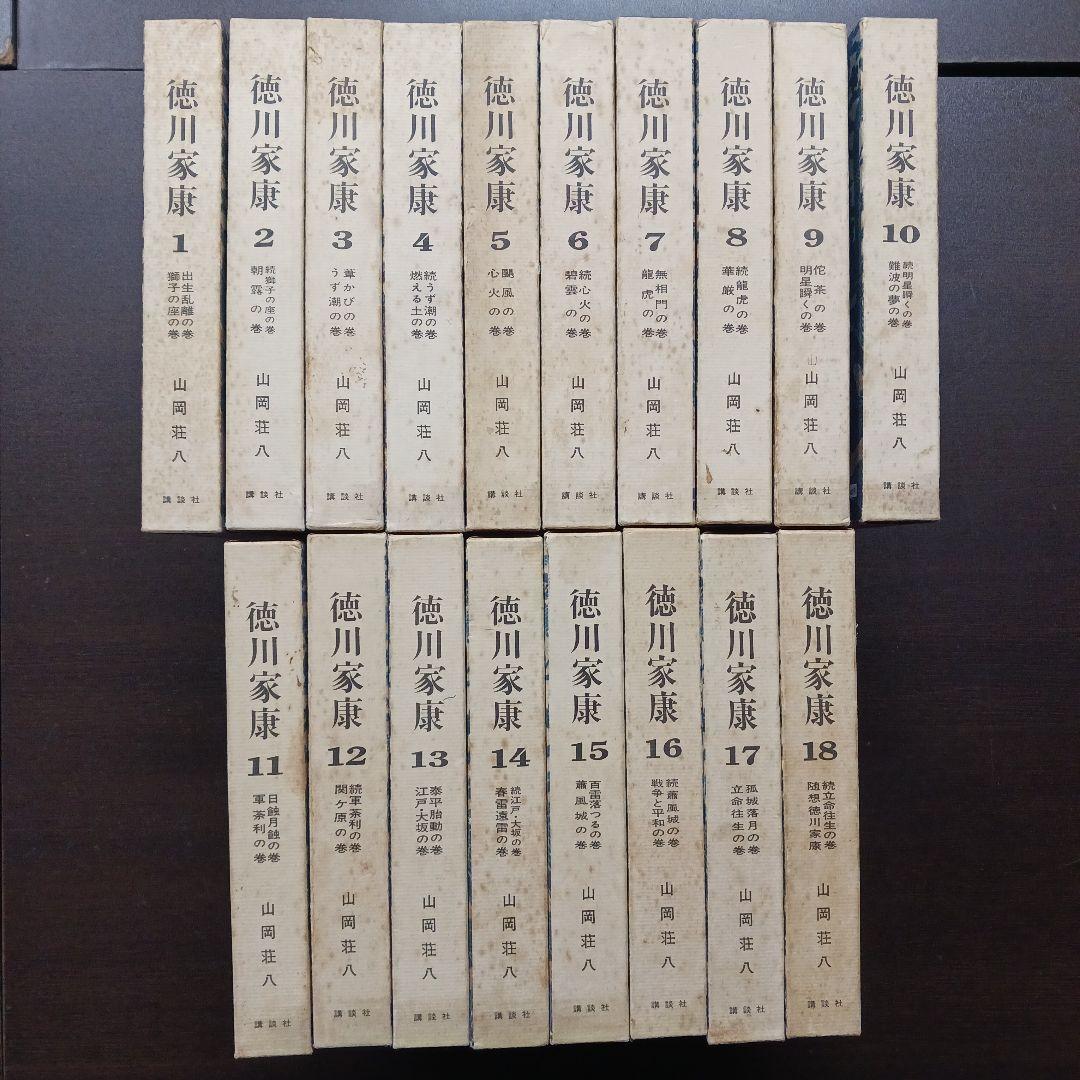 徳川家康
1
出生乱離の巻
獅子の座の巻
山岡荘八
講談社
徳川家康
2
続獅子の座の巻
朝露の巻
山岡荘八
講談社
徳川家康
3
葦かびの巻
うず潮の巻
山岡荘八
講談社
徳川家康
4
続うず潮の巻
燃える土の巻
山岡荘八
講談社
徳川家康
5
颶風の巻
心火の巻
山岡荘八
講談社
徳川家康
6
続心火の巻
碧雲の巻
山岡荘八
講談社
徳川家康
7
無相門の巻
龍虎の巻
山岡荘八
講談社
徳川家康
8
続龍虎の巻
華厳の巻
山岡荘八
講談社
徳川家康
9
佗茶の巻
明星瞬くの巻
山岡荘八
講談社
徳川家康
10
続明星瞬くの巻
難波の夢の巻
山岡荘八
講談社
徳川家康
11
日蝕月蝕の巻
軍荼利の巻
山岡荘八
講談社
徳川家康
12
続軍荼利の巻
関ケ原の巻
山岡荘八
講談社
徳川家康
13
泰平胎動の巻
江戸・大坂の巻
山岡荘八
講談社
徳川家康
14
続江戸・大坂の巻
春雷遠雷の巻
山岡荘八
講談社
徳川家康
15
百雷落つるの巻
蕭風城の巻
山岡荘八
講談社
徳川家康
16
続蕭風城の巻
戦争と平和の巻
山岡荘八
講談社
徳川家康
17
孤城落月の巻
立命往生の巻
山岡荘八
講談社
徳川家康
18
続立命往生の巻
随想徳川家康
山岡荘八
講談社